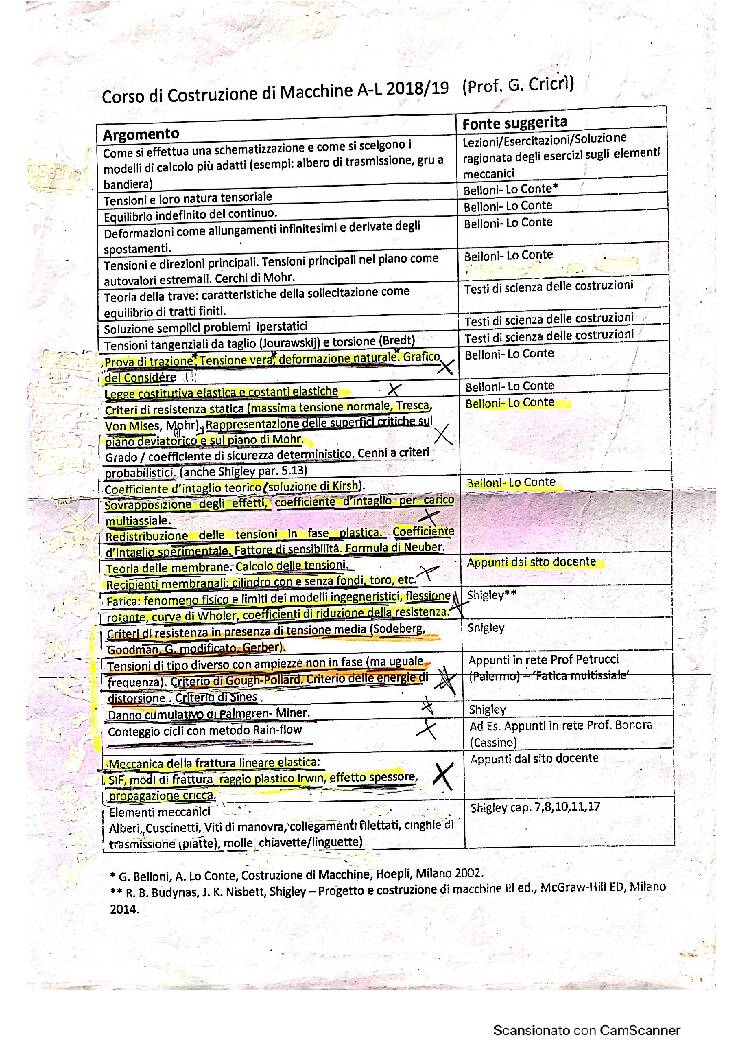 Corso di Costruzione di Macchine A-L 2018/19 (Prof. G. Cricrì)
Argomento
Fonte suggerita
Come si effettua una schematizzazione e come si scelgono i
modelli di calcolo più adatti (esempi: albero di trasmissione, gru a
bandiera)
Lezioni/Esercitazioni/Soluzione
ragionata degli esercizi sugli elementi
meccanici
Tensioni e loro natura tensoriale
Belloni- Lo Conte*
Equilibrio indefinito del continuo.
Belloni- Lo Conte
Deformazioni come allungamenti infinitesimi e derivate degli
spostamenti.
Belloni- Lo Conte
Tensioni e direzioni principali. Tensioni principali nel piano come
autovalori estremali. Cerchi di Mohr.
Belloni- Lo Conte
Teoria della trave: caratteristiche della sollecitazione come
equilibrio di tratti finiti.
Testi di scienza delle costruzioni
Soluzione semplici problemi iperstatici
Testi di scienza delle costruzioni
Tensioni tangenziali da taglio (Jourawskij) e torsione (Bredt)
Testi di scienza delle costruzioni
Prova di trazione. Tensione vera, deformazione naturale. Grafico
del Considére
Belloni- Lo Conte
Legge costitutiva elastica e costanti elastiche
Belloni- Lo Conte
Criteri di resistenza statica (massima tensione normale, Tresca,
Von Mises, Mohr). Rappresentazione delle superfici critiche sul
piano deviatorico e sul piano di Mohr.
Grado / coefficiente di sicurezza deterministico. Cenni a criteri
probabilistici. (anche Shigley par. 5.13)
Belloni- Lo Conte
Coefficiente d'intaglio teorico (soluzione di Kirsh).
Sovrapposizione degli effetti, coefficiente d'intaglio per carico
multiassiale.
Redistribuzione delle tensioni in fase plastica. Coefficiente
d'intaglio sperimentale. Fattore di sensibilità. Formula di Neuber.
Belloni- Lo Conte
Teoria delle membrane. Calcolo delle tensioni.
Recipienti membranali: cilindro con e senza fondi, toro, etc.
Appunti dal sito docente
Fatica: fenomeno fisico e limiti dei modelli ingegneristici, flessione
rotante, curve di Wholer, coefficienti di riduzione della resistenza.
Shigley**
Criteri di resistenza in presenza di tensione media (Sodeberg,
Goodman, G. modificato, Gerber).
Shigley
Tensioni di tipo diverso con ampiezze non in fase (ma uguale
frequenza). Criterio di Gough-Pollard. Criterio delle energie di
distorsione. Criterio di Sines
Appunti in rete Prof Petrucci
(Palermo) – 'Fatica multissiale'
Danno cumulativo di Palmgren- Miner.
Shigley
Conteggio cicli con metodo Rain-flow
Ad Es. Appunti in rete Prof. Bonora
(Cassino)
Meccanica della frattura lineare elastica:
SIF, modi di frattura, raggio plastico Irwin, effetto spessore,
propagazione cricca.
Appunti dal sito docente
Elementi meccanici
Alberi, Cuscinetti, Viti di manovra, collegamenti filettati, cinghie di
trasmissione (piatte), molle, chiavette/linguette)
Shigley cap. 7,8,10,11,17
* G. Belloni, A. Lo Conte, Costruzione di Macchine, Hoepli, Milano 2002.
** R. B. Budynas, J. K. Nisbett, Shigley – Progetto e costruzione di macchine III ed., McGraw-Hill ED, Milano
2014.
Scansionato con CamScanner